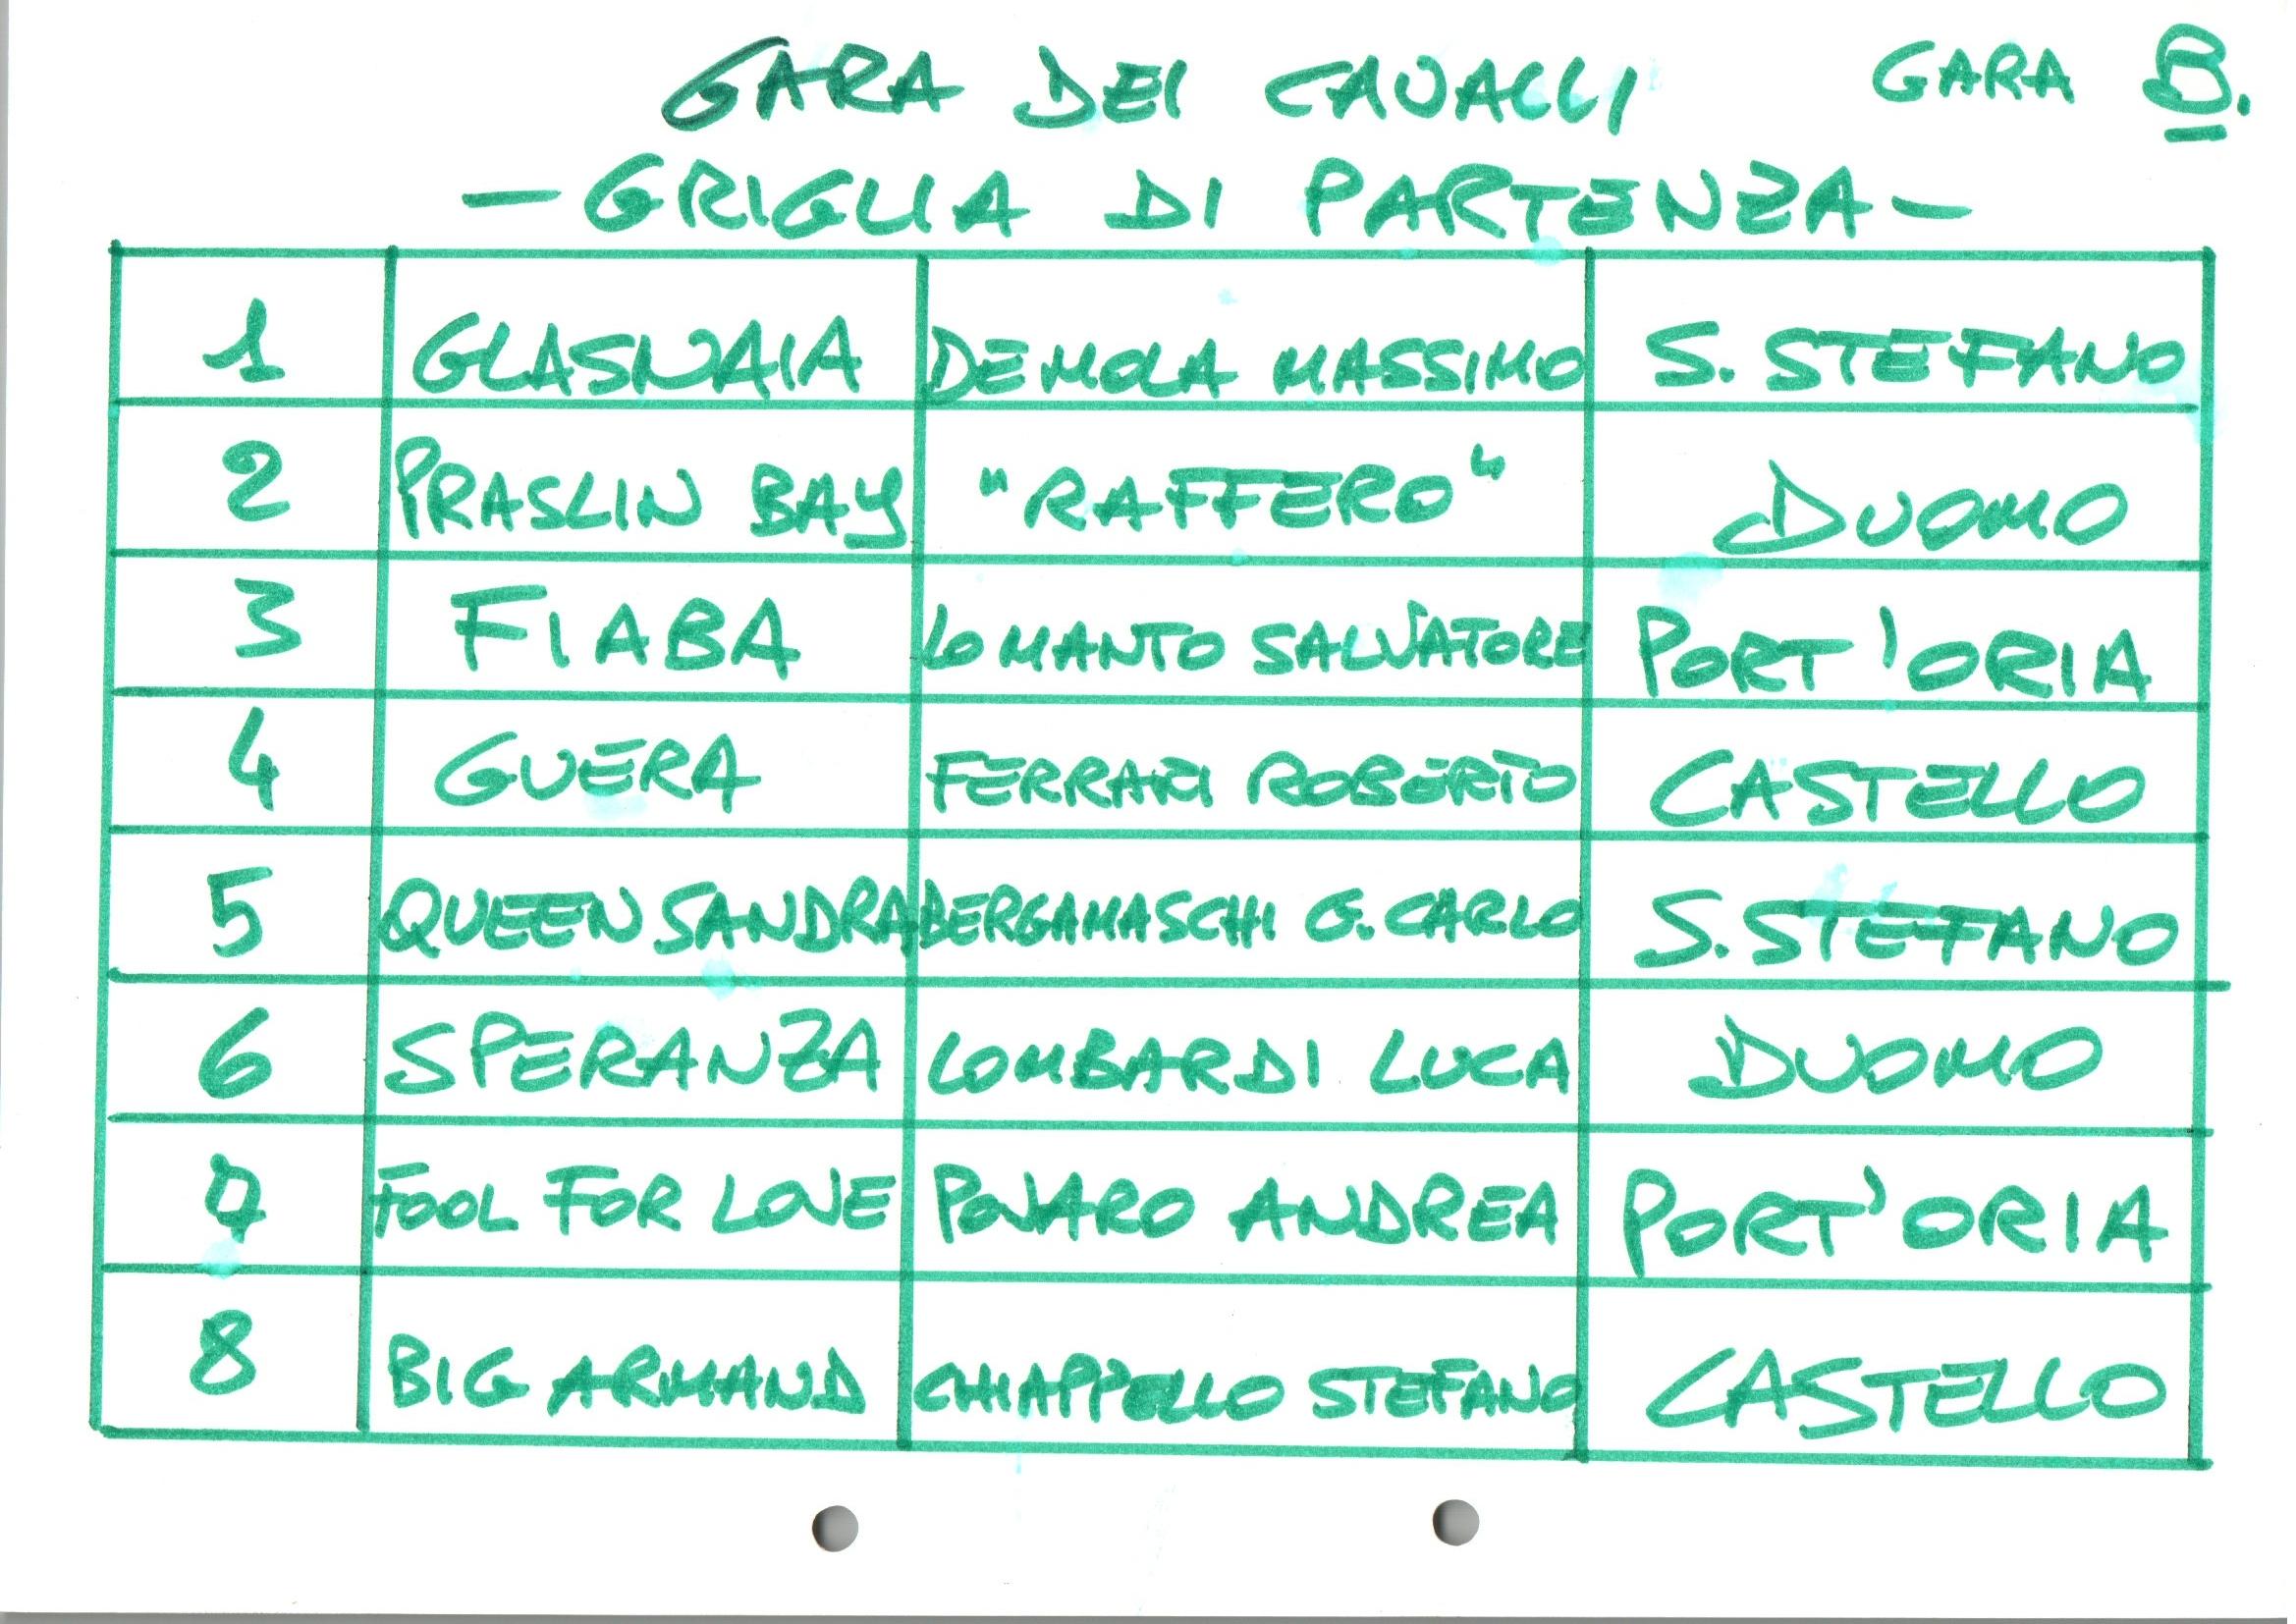 GARA DEI CAVALLI GARA B.
- GRIGLIA DI PARTENZA -
1 GLASNAIA DEMOLA MASSIMO S. STEFANO
2 PRASLIN BAY "RAFFERO" DUOMO
3 FIABA LO MANTO SALVATORE PORT'ORIA
4 GUERA FERRARI ROBERTO CASTELLO
5 QUEEN SANDRA BERGAMASCHI G. CARLO S. STEFANO
6 SPERANZA LOMBARDI LUCA DUOMO
7 FOOL FOR LOVE POVARO ANDREA PORT'ORIA
8 BIG ARMAND CHIAPPELLO STEFANO CASTELLO